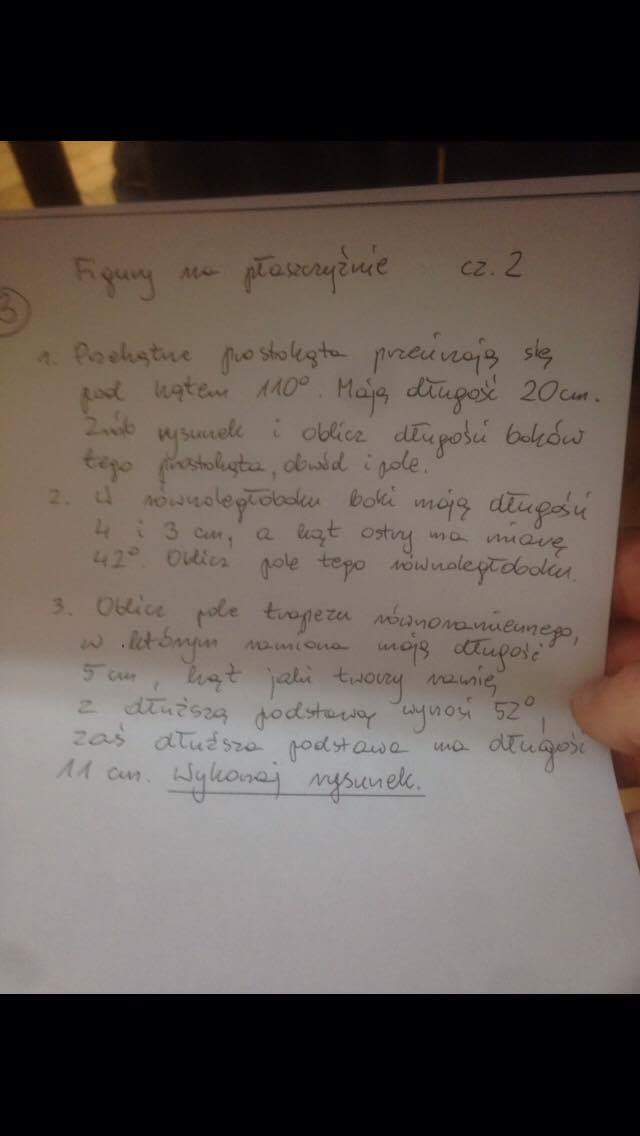 Figury na płaszczyźnie cz. 2
3
1. Przekątne prostokąta przecinają się
pod kątem 110°. Mają długość 20cm.
Zrób rysunek i oblicz długości boków
tego prostokąta, obwód i pole.
2. W równoległoboku boki mają długości
4 i 3 cm, a kąt ostry ma miarę
42°. Oblicz pole tego równoległoboku.
3. Oblicz pole trapezu równoramiennego,
w którym ramiona mają długość
5 cm, kąt jaki tworzy ramię
z dłuższą podstawą wynosi 52°,
zaś dłuższa podstawa ma długość
11 cm. Wykonaj rysunek.